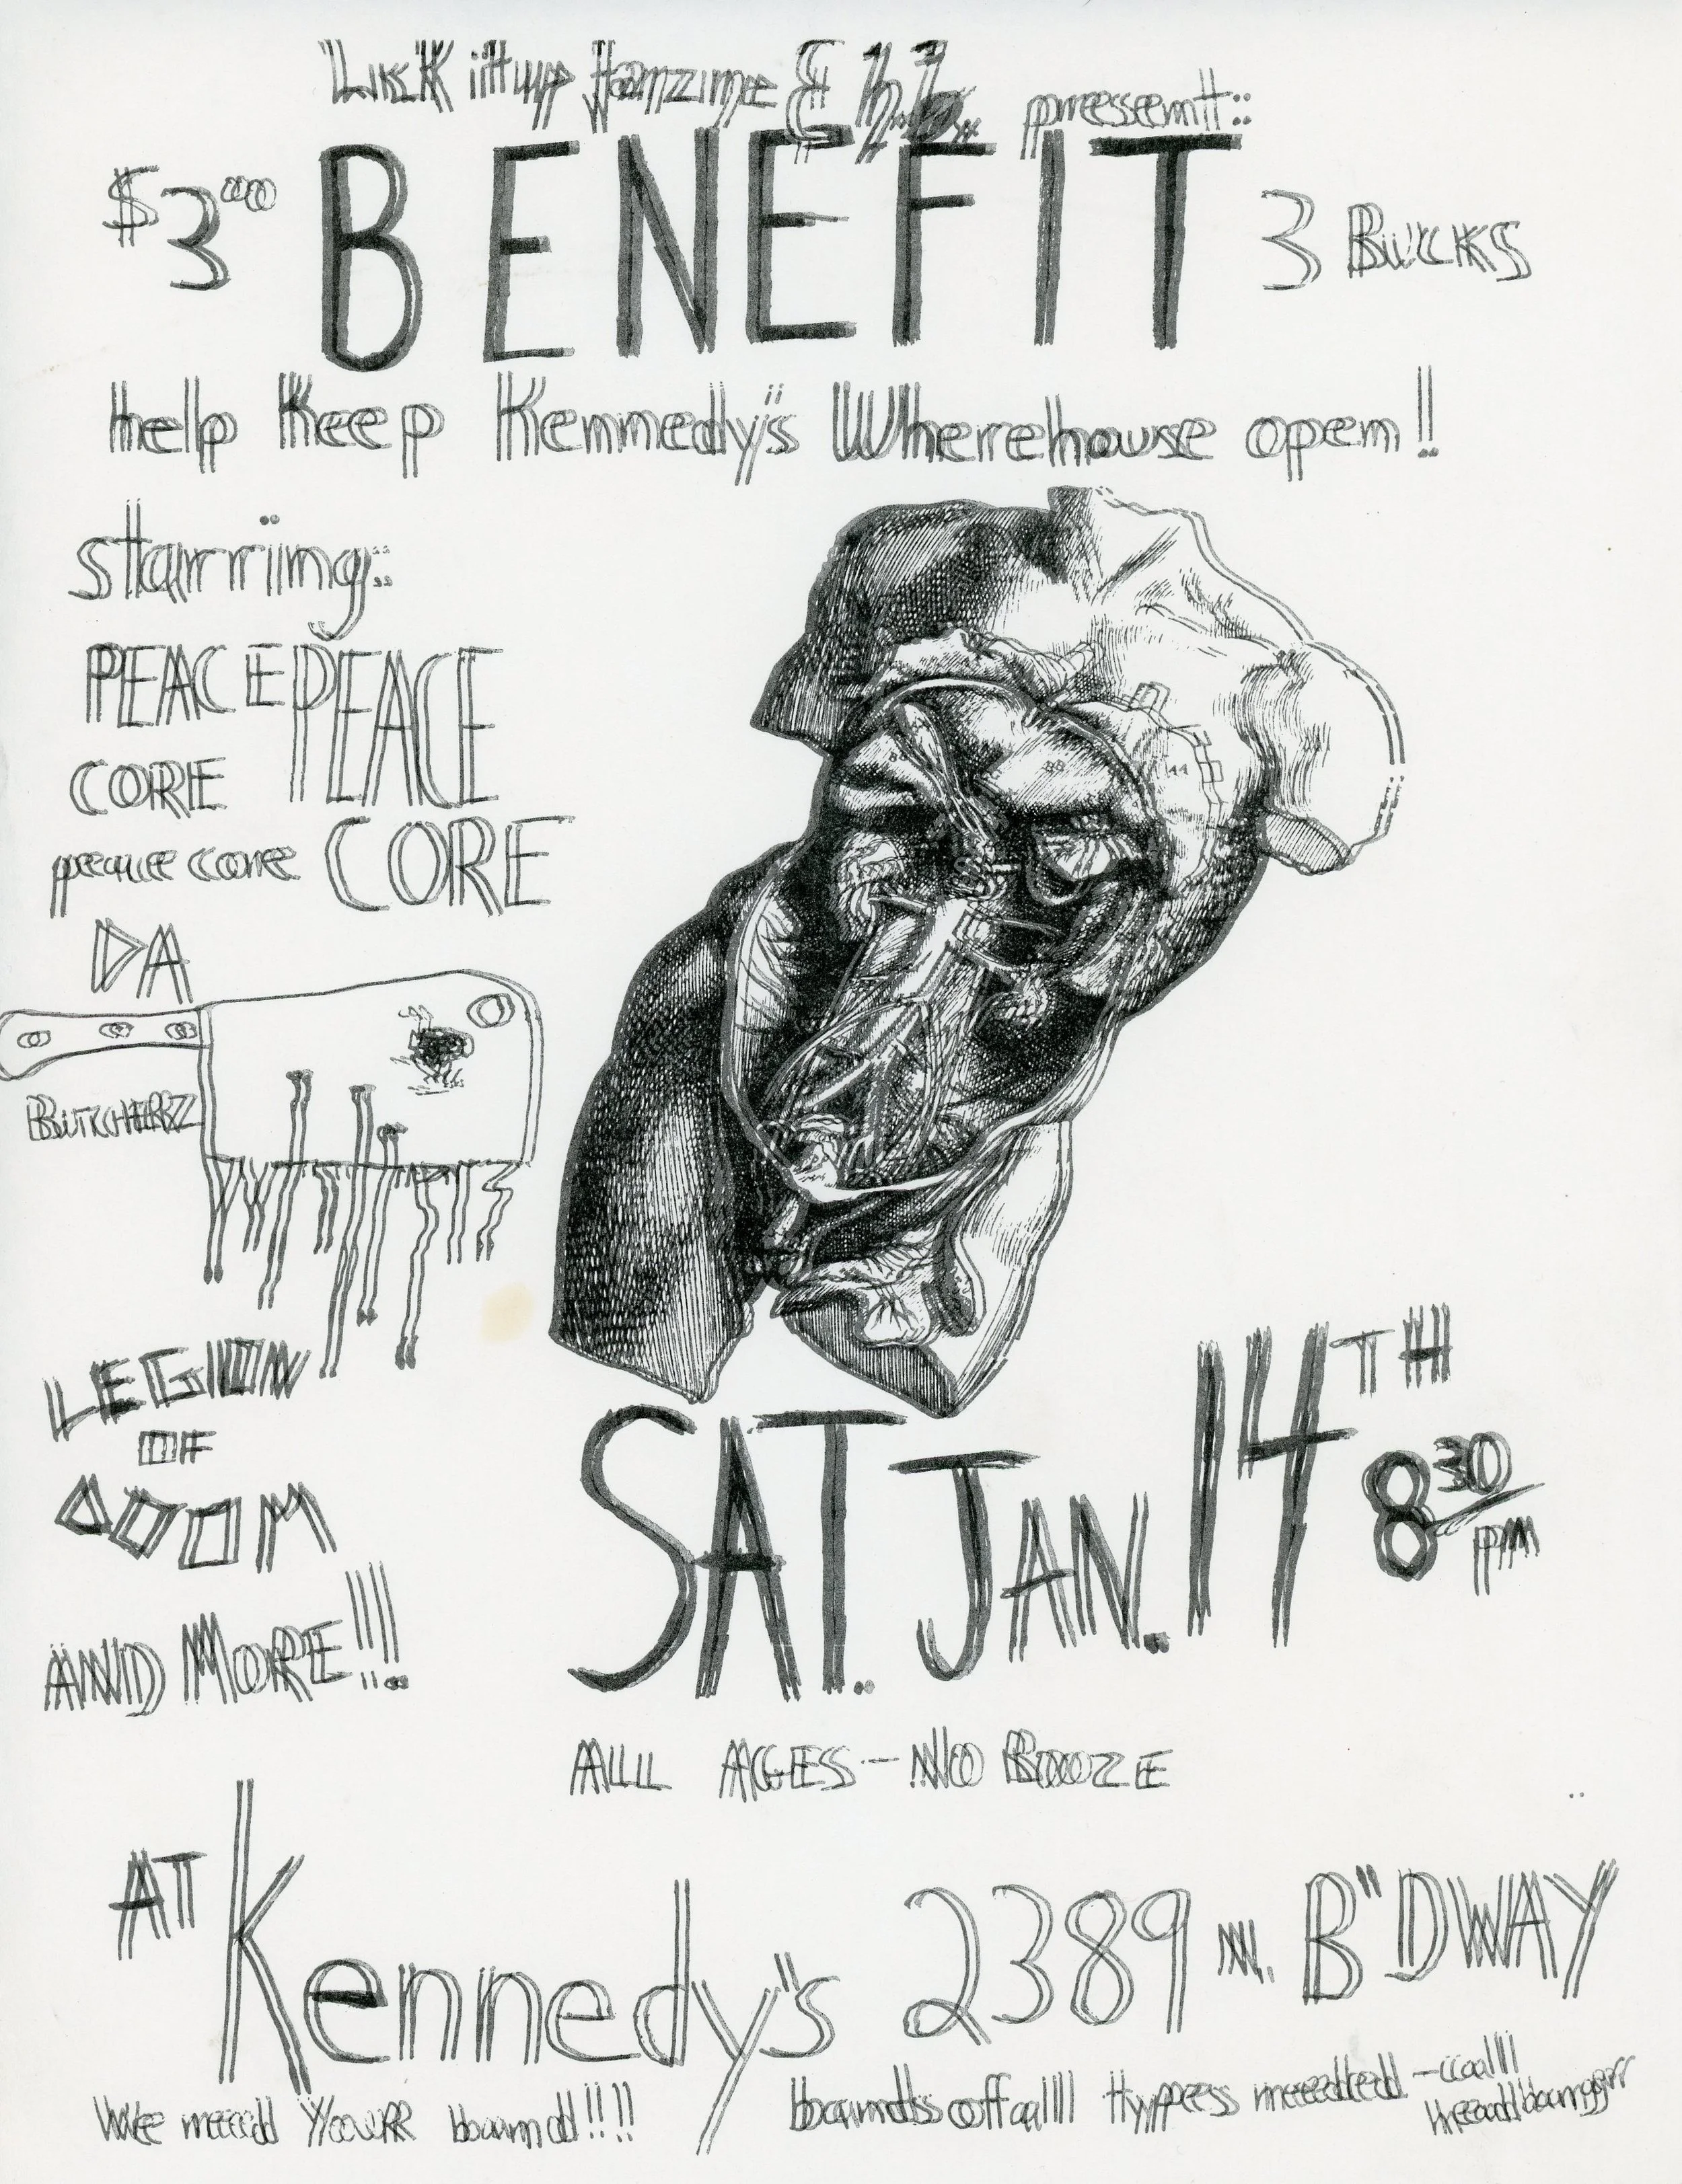 Lick it up fanzine & h.b. present:
$3.00 BENEFIT 3 Bucks
help Keep Kennedy's Wherehouse open!!
starring:
PEACE PEACE
CORE
peace core CORE
DA
BUTCHERZ
LEGION
OF
DOOM
AND MORE!!!
SAT. JAN. 14TH
8 30 pm
ALL AGES - NO BOOZE
AT Kennedy's 2389 N. B'DWAY
We need YouR band!!!! bands of all types needed - call
headbangr